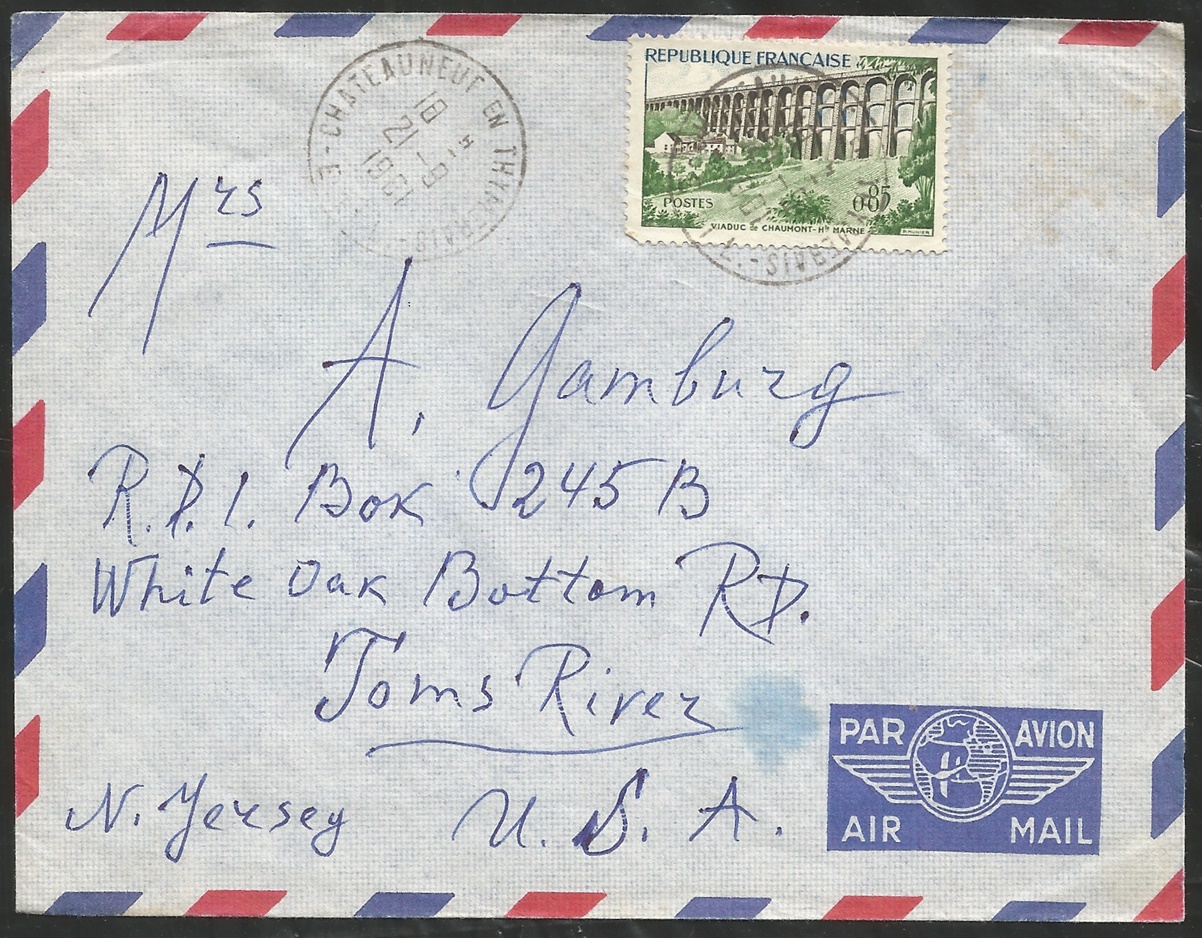 REPUBLIQUE FRANÇAISE
POSTES
0,85
VIADUC de CHAUMONT-Hte MARNE
CHATEAUNEUF EN THYMERAIS
18 H
21 - 9
1961
Mrs
A. Gamburg
R.D.1. Box 245 B
White Oak Bottom RD.
Toms River
N. Jersey U.S.A.
PAR AVION
AIR MAIL